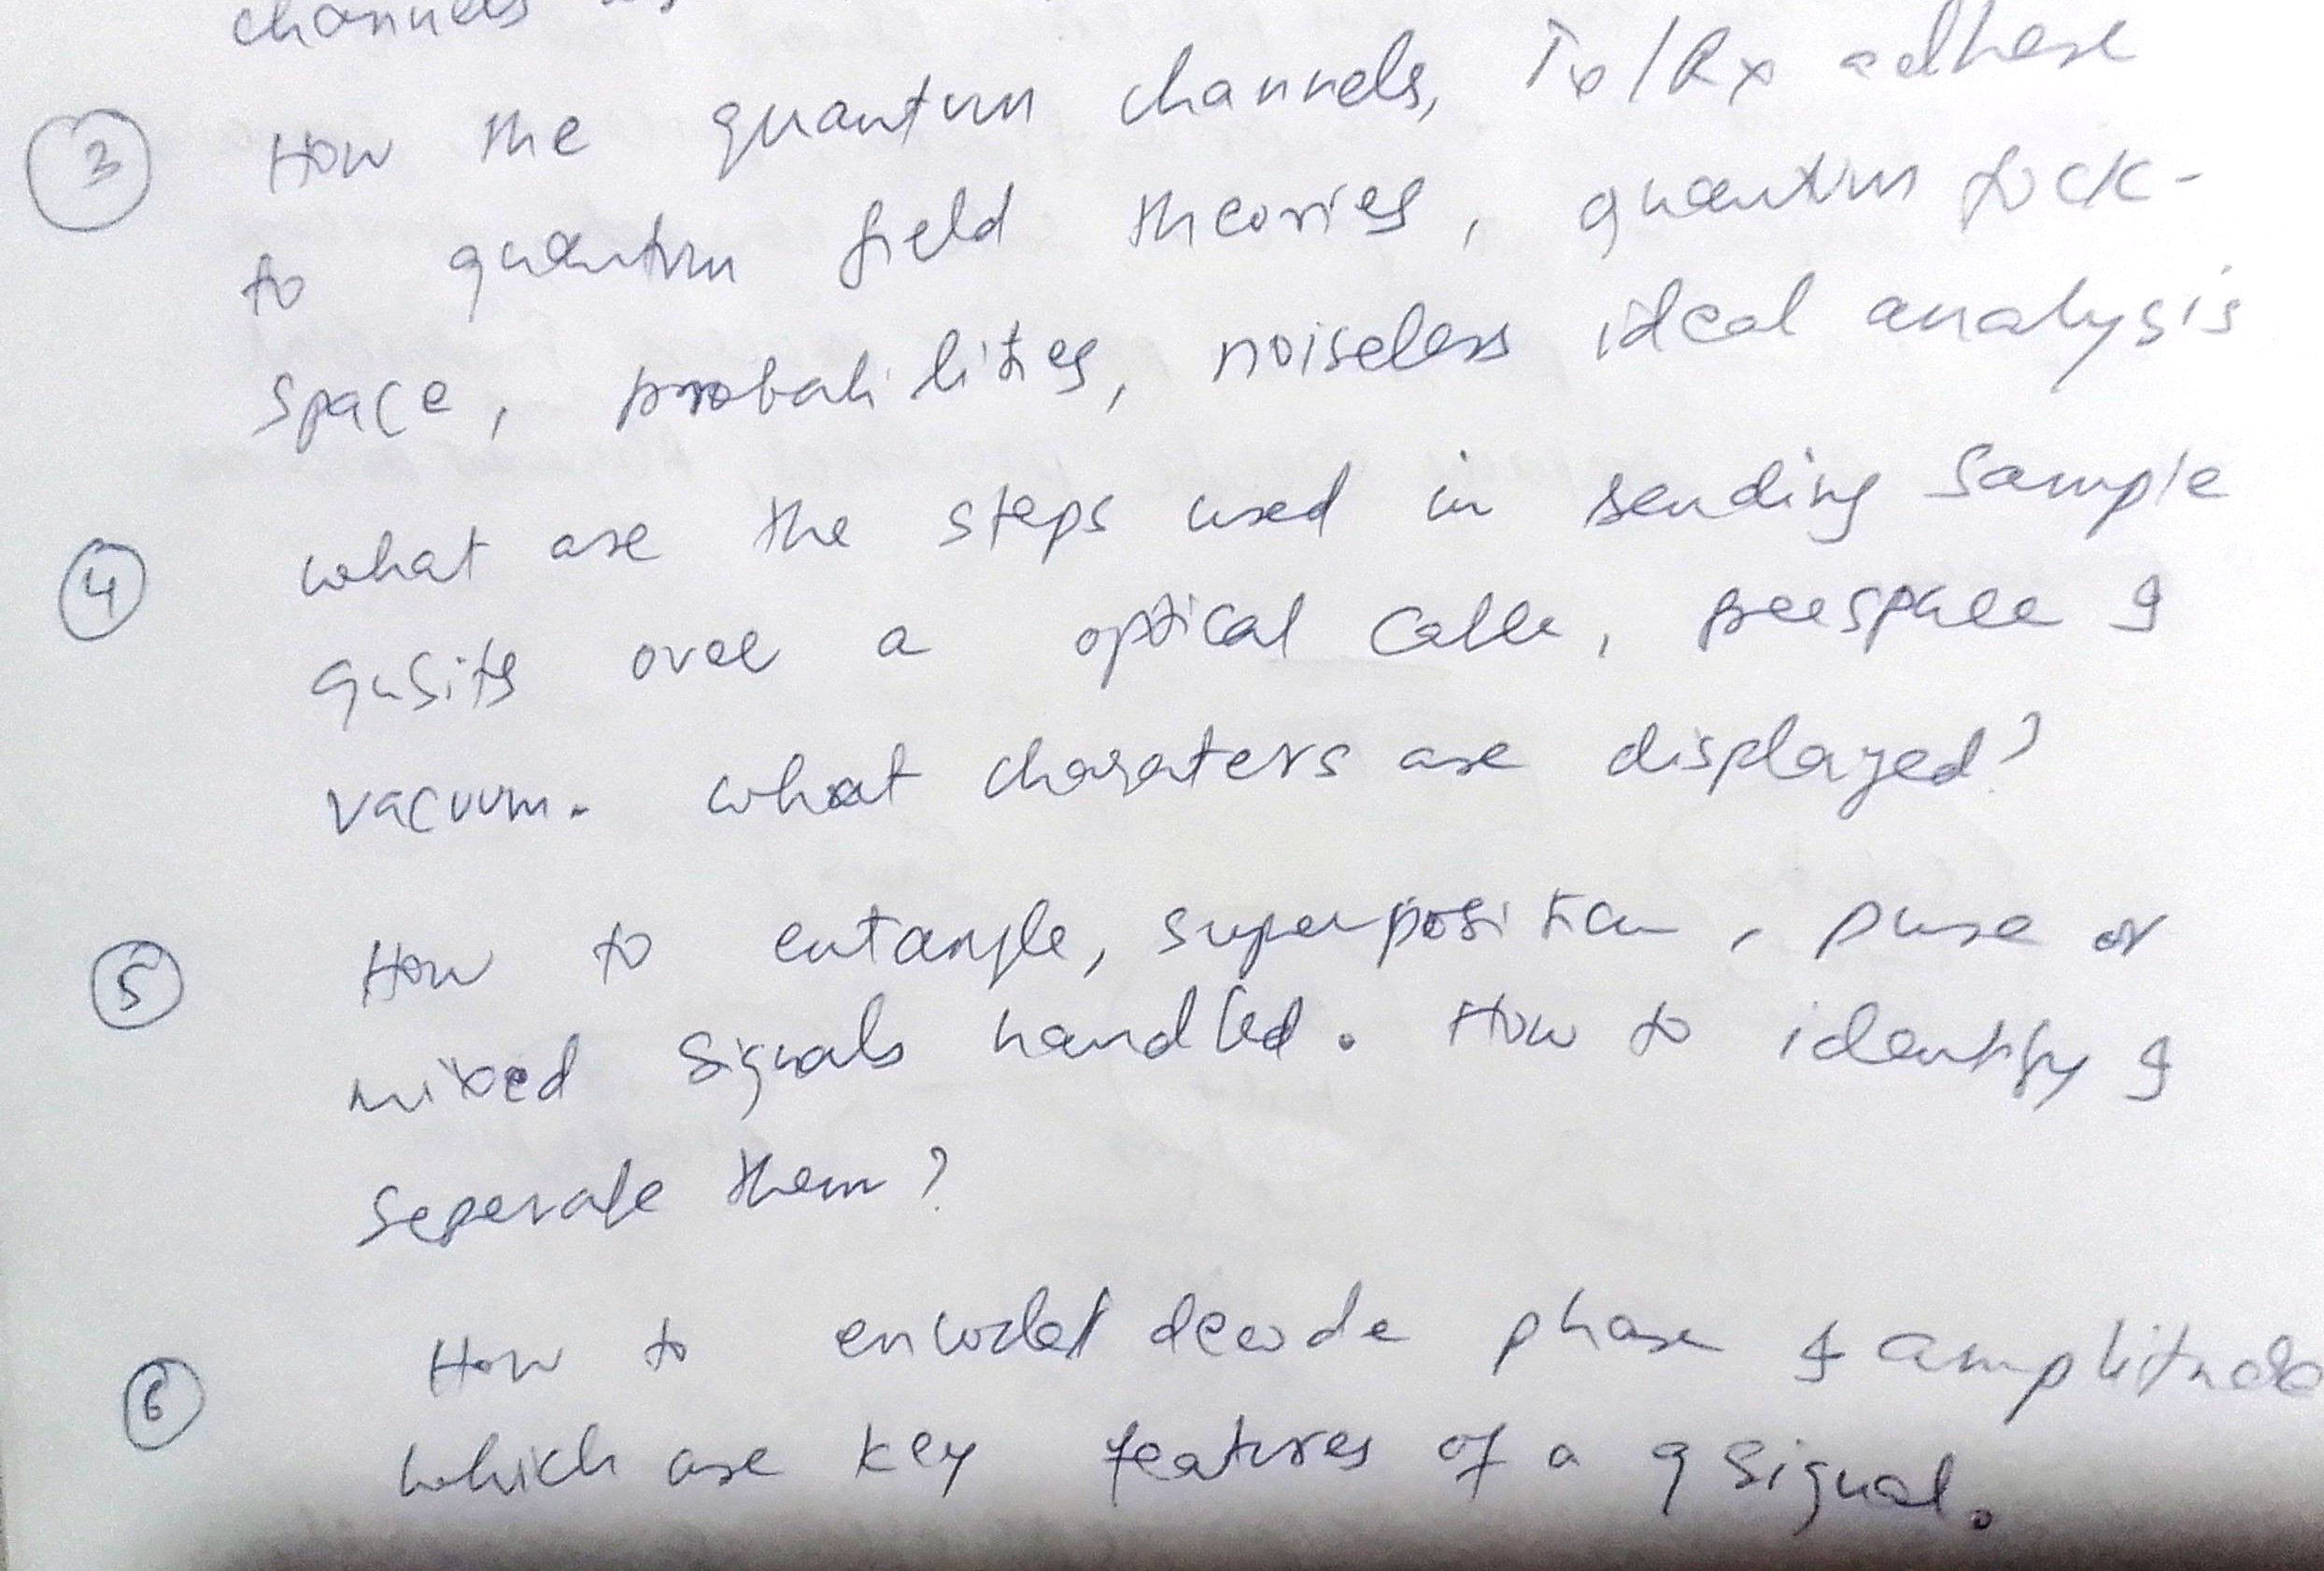 channels
③ How the quantum channels, Tx/Rx adhere
to quantum field theories, quantum fock-
space, probabilites, noiseless ideal analysis
④ what are the steps used in sending sample
qubits over a optical cable, freespace &
vacuum. what charaters are displayed?
⑤ How to entangle, superposition, pure or
mixed signals handled. How to identify &
seperate them?
⑥ How to encode & decode phase & amplitude
which are key features of a q signal.